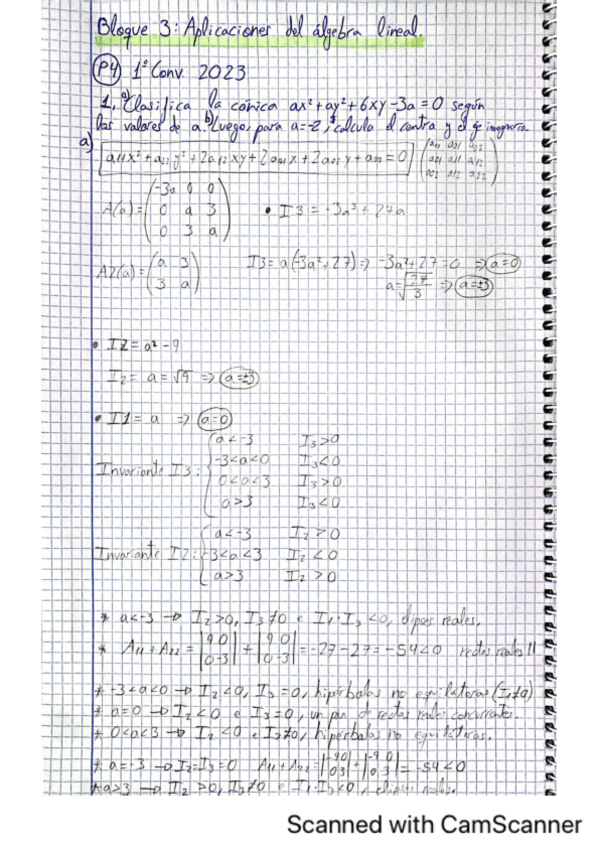 Bloque 3: Aplicaciones del álgebra lineal.
P4) 1ª Conv. 2023
1. a) Clasifica la cónica ax² + ay² + 6xy - 3a = 0 según
los valores de a. b) Luego, para a = -2, calcula el centro y el eje imaginario.
a) a₁₁x² + a₂₂y² + 2a₁₂xy + 2a₀₁x + 2a₀₂y + a₀₀ = 0
A(a) = (-3a 0 0
0 a 3
0 3 a)
• I3 = -3a³ + 27a
A2(a) = (a 3
3 a)
I3 = a(-3a² + 27) => -3a² + 27 = 0 => a=0
a = √27/3 => a=±3
• I2 = a² - 9
I2 = a = √9 => a=±3
• I1 = a => a=0
Invariante I3:
a<-3 I3>0
-3<a<0 I3<0
0<a<3 I3>0
a>3 I3<0
Invariante I2:
a<-3 I2>0
-3<a<3 I2<0
a>3 I2>0
* a<-3 → I2>0, I3≠0 e I1·I3<0, elipses reales.
* A11 + A22 = |9 0 0 -3| + |9 0 0 -3| = -27 - 27 = -54<0 rectas reales ||
* -3<a<0 → I2<0, I3=0, hipérbolas no equiláteras (I1≠a)
* a=0 → I2<0 e I3=0, un par de rectas reales concurrentes.
* 0<a<3 → I2<0 e I3≠0, hipérbolas no equiláteras.
* a=-3 → I2=I3=0 A11 + A22 = |-9 0 0 3| + |-9 0 0 3| = -54<0
* a>3 → I2>0, I3≠0 e I1·I3<0, elipses reales.
Scanned with CamScanner